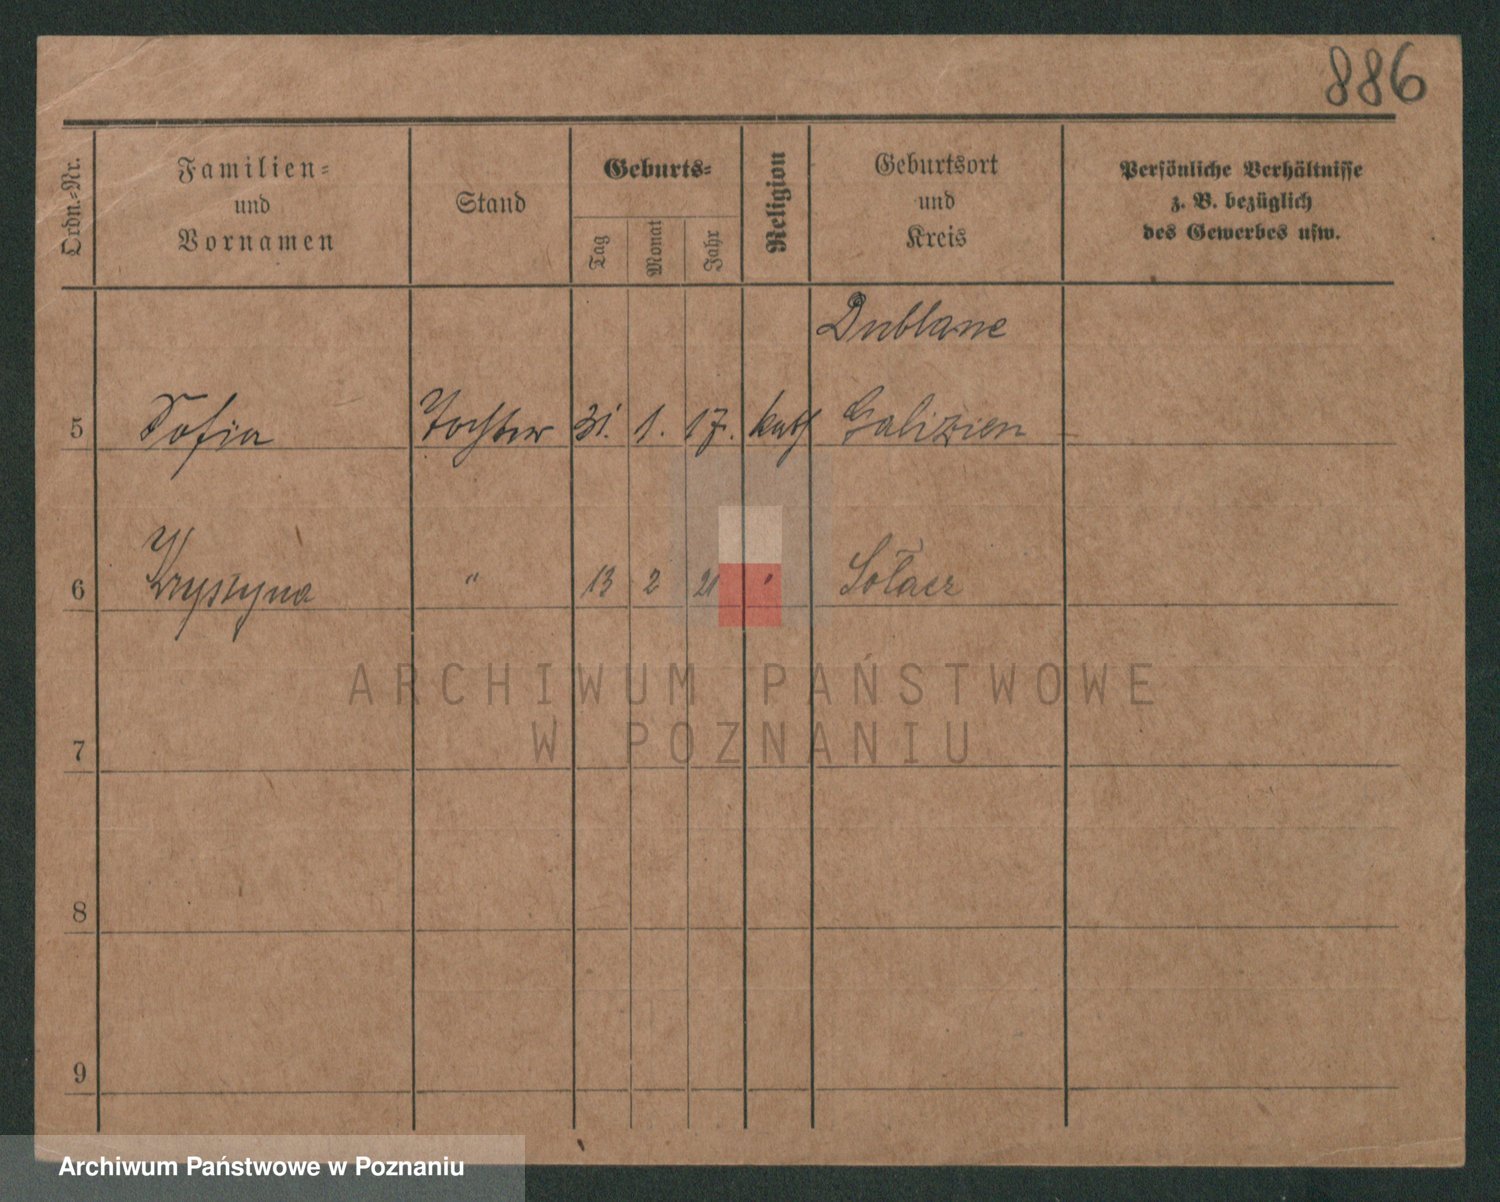 886
Ordn.-Nr.
Familien-
und
Vornamen
Stand
Geburts-
Tag
Monat
Jahr
Religion
Geburtsort
und
Kreis
Persönliche Verhältnisse
z. B. bezüglich
des Gewerbes usw.
Dublane
5 Sofia Tochter 31. 1. 17. kath Galizien
6 Krystyna " 13 2 21 " Sołacz
7
8
9
ARCHIWUM PAŃSTWOWE
W POZNANIU
Archiwum Państwowe w Poznaniu